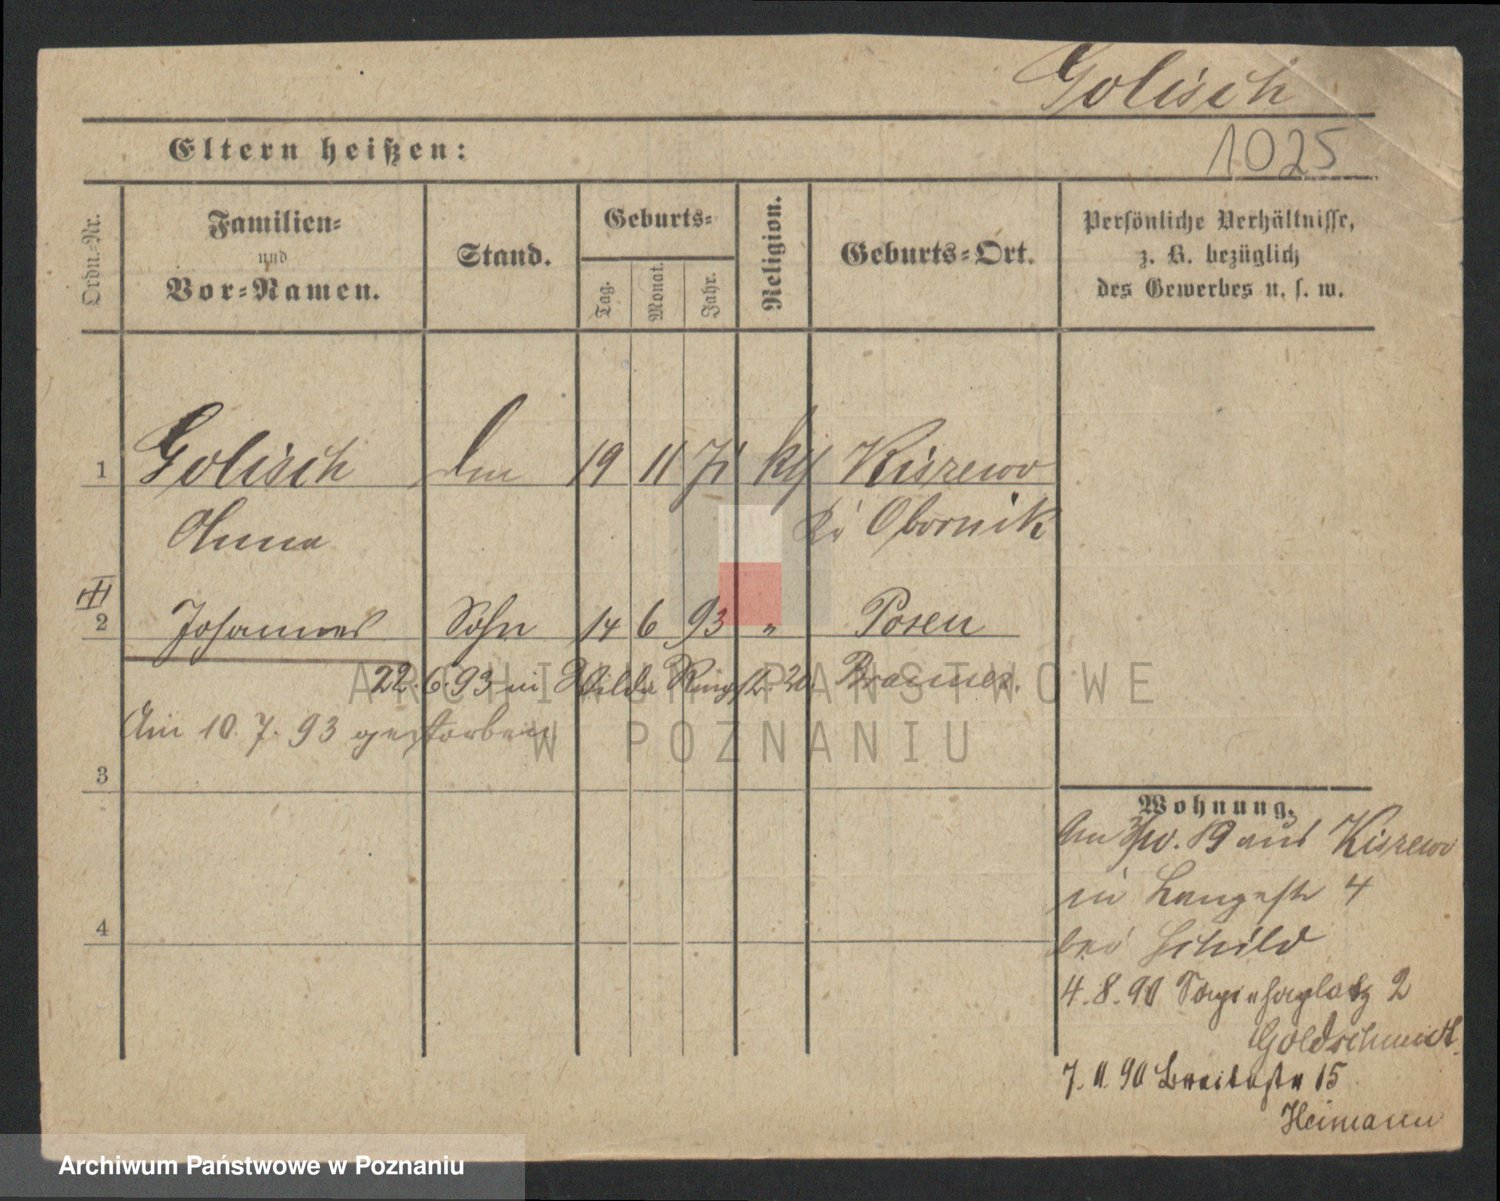 Golisch
Eltern heißen:
1025
Ordn.-Nr.
Familien-
und
Vor-Namen.
Stand.
Geburts-
Tag.
Monat.
Jahr.
Religion.
Geburts-Ort.
Persönliche Verhältnisse,
z. B. bezüglich
des Gewerbes u. s. w.
1 Golisch 19 11 71 Kiszewo
Anna Obornik
2 Johannes Sohn 14 6 93 " Posen
22. 6. 93 in Wilda Ringstr. 20
Am 10. 7. 93 gestorben
3
4
Wohnung.
Am 89 aus Kiszewo
in Langestr 4
bei Schild
4. 8. 90 Sapiehaplatz 2
Goldschmidt.
7. 11. 90 Breitestr 15
Heimann
ARCHIWUM PAŃSTWOWE
W POZNANIU
Archiwum Państwowe w Poznaniu